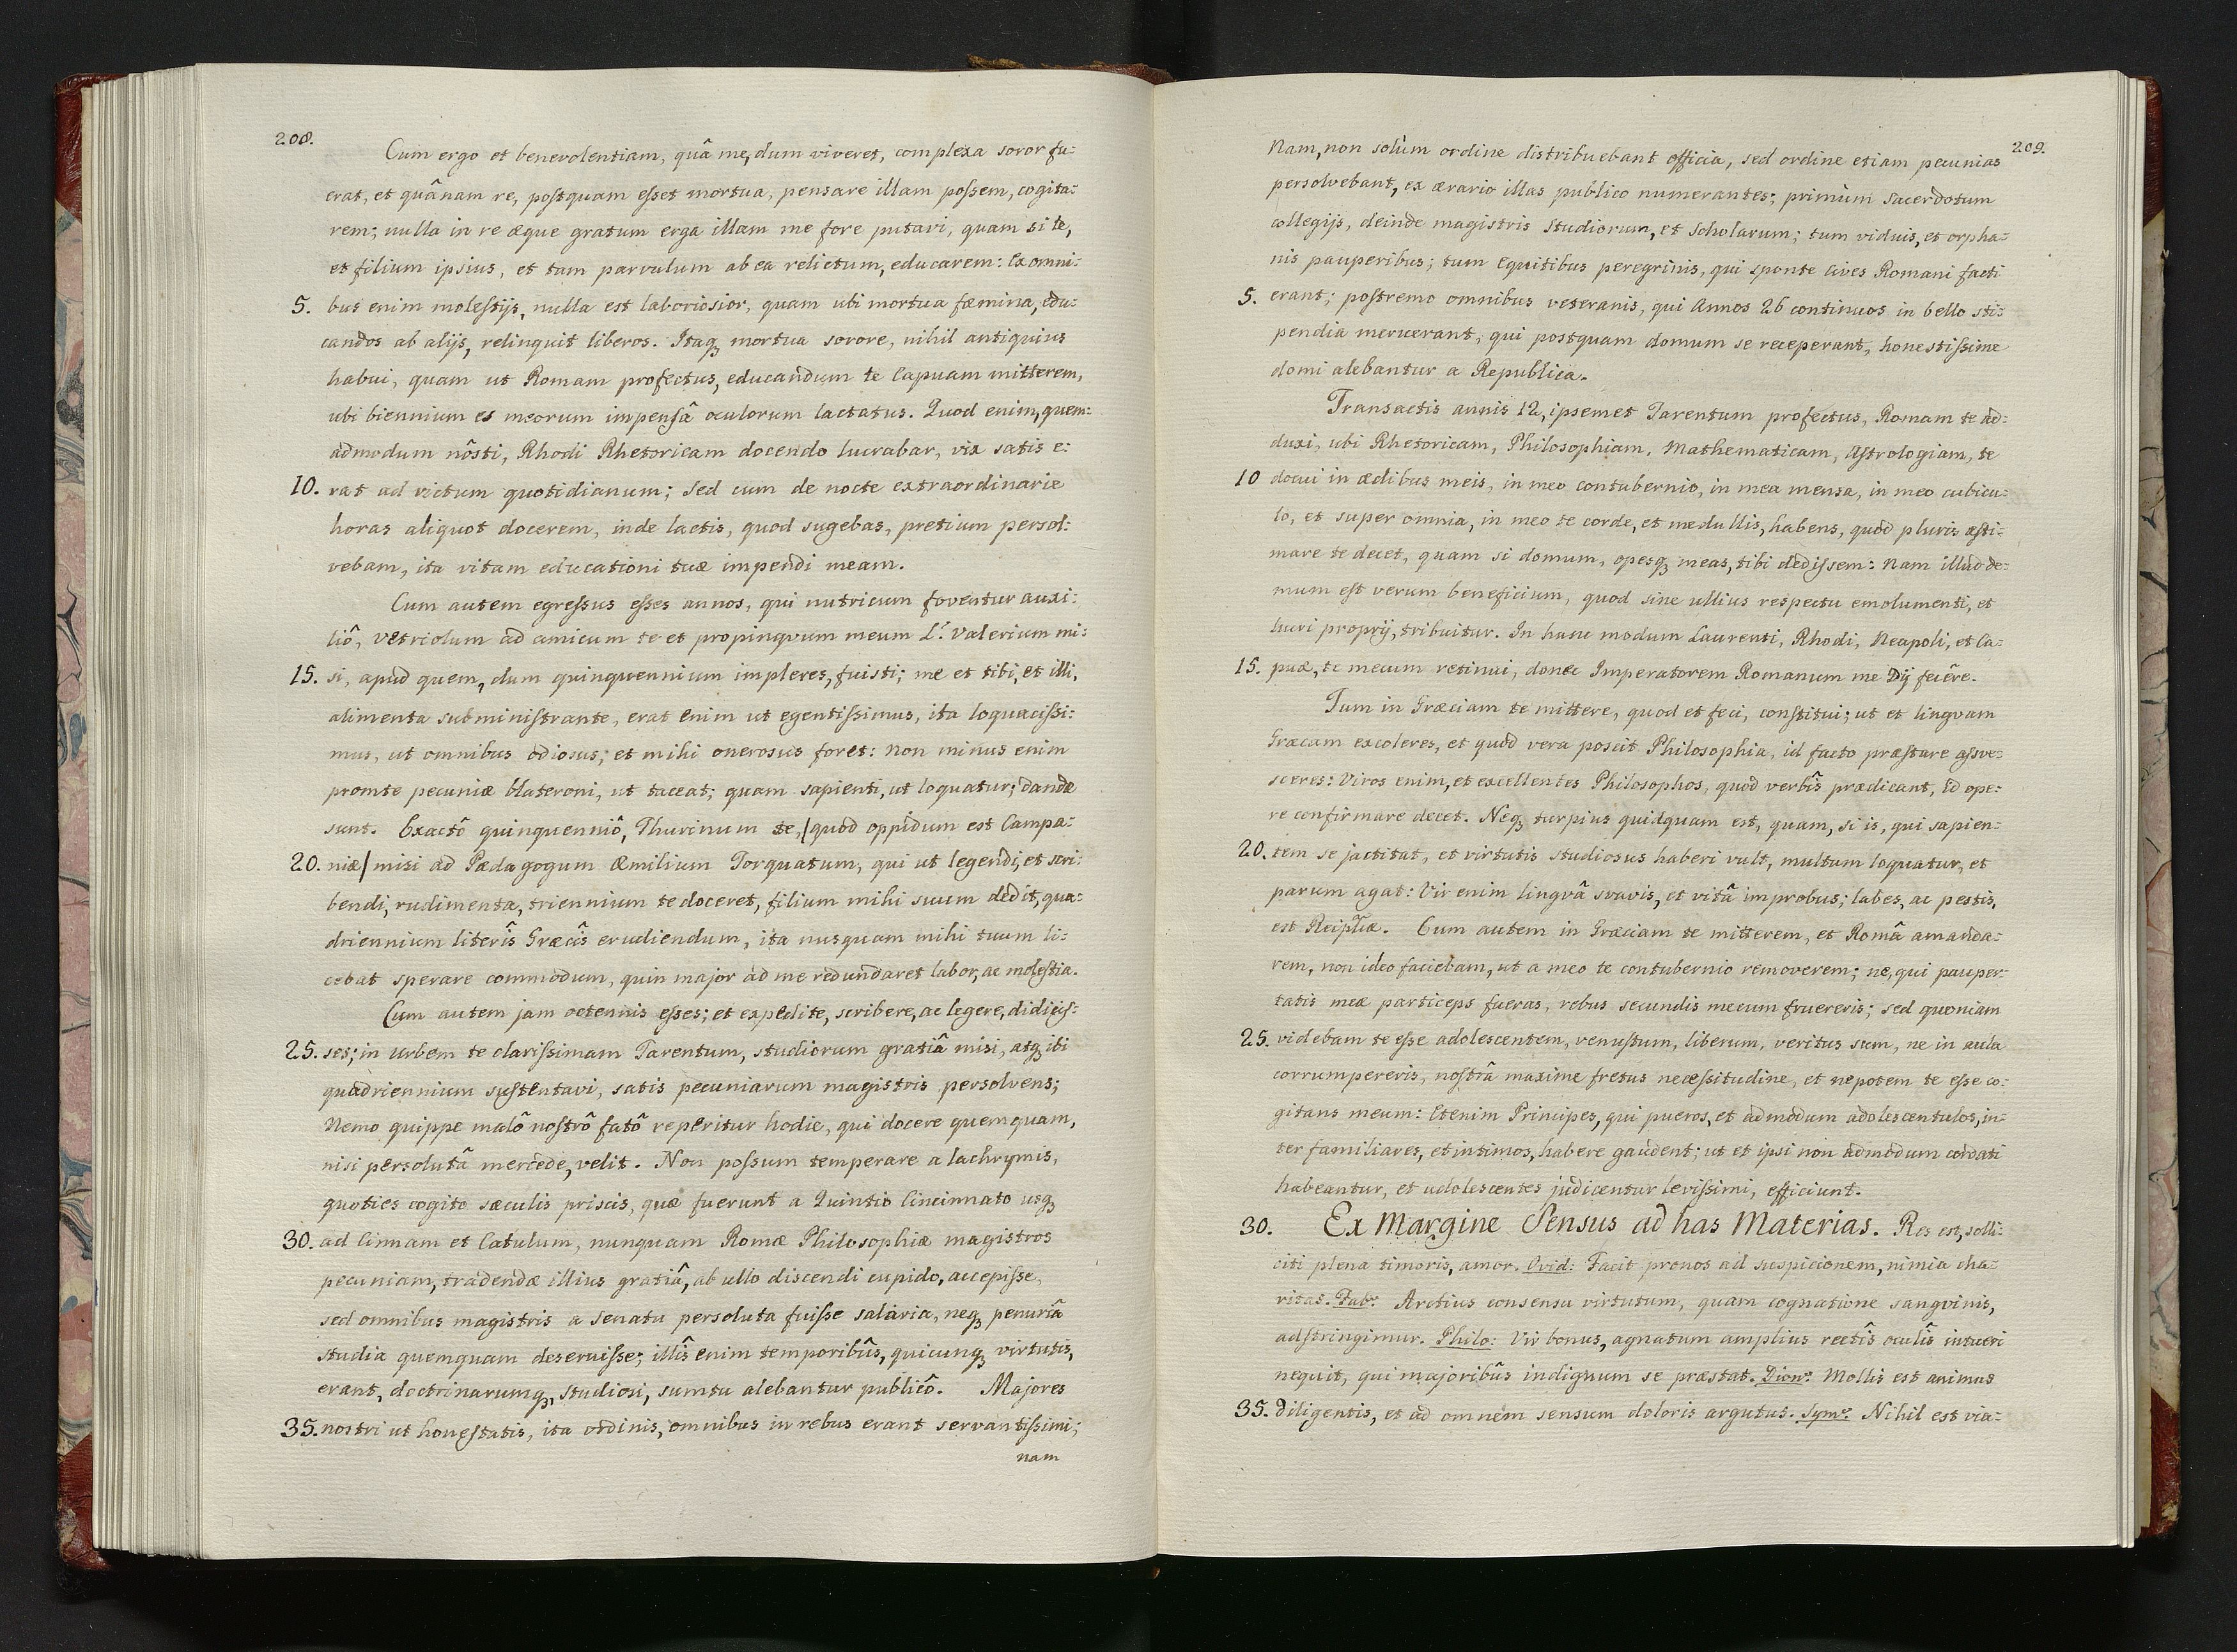 208.
Cum ergo et benevolentiam, quâ me, dum viveret, complexa soror fu=
erat, et quânam re, postquam esset mortua, pensare illam possem, cogita=
rem; nulla in re æque gratum erga illam me fore putavi, quam si te,
et filium ipsius, et tam parvulum ab ea relictum, educarem: Ex omni=
5. bus enim molestijs, nulla est laboriosior, quam ubi mortua fæmina, edu=
candos ab alijs, relinquit liberos. Itaq₃ mortua sorore, nihil antiquius
habui, quam ut Romam profectus, educandum te Capuam mitterem,
ubi biennium es meorum impensâ oculorum lactatus. Quod enim, quem=
admodum nôsti, Rhodi Rhetoricam docendo lucrabar, vix satis e=
10. rat ad victum quotidianum; sed cum de nocte extraordinarie
horas aliquot docerem, inde lactis, quod sugebas, pretium persol=
vebam, ita vitam educationi tuæ impendi meam.
Cum autem egressus esses annos, qui nutricum foventur auxi=
liô, Vetriolum ad amicum te et propinqvum meum L. Valerium mi=
15. si, apud quem, dum quinquennium impleres, fuisti; me et tibi, et illi,
alimenta subministrante, erat enim ut egentissimus, ita loquacissi=
mus, ut omnibus odiosus; et mihi onerosus foret: non minus enim
promte pecuniæ blateroni, ut taceat; quam sapienti, ut loquatur; dandæ
sunt. Exactô quinquenniô, Thurinum te, /quod oppidum est Campa=
20. niæ/ misi ad Pædagogum Æmilium Torquatum, qui ut legendi, et scri=
bendi, rudimenta, triennium te doceret, filium mihi suum dedit, qua=
driennium literîs Græcîs erudiendum, ita nusquam mihi tuum li=
cebat sperare commodum, quin major ad me redundaret labor, ac molestia.
Cum autem jam octennis esses; et expedite, scribere, ac legere, didicis=
25. ses; in urbem te clarissimam Tarentum, studiorum gratiâ misi, atq₃ ibi
quadriennium sustentavi, satis pecuniarum magistris persolvens;
Nemo quippe malô nostrô fatô reperitur hodie, qui docere quemquam,
nisi persolutâ mercede, velit. Non possum temperare a lachrymis,
quoties cogito sæculis priscis, quæ fuerunt a Quintio Cincinnato usq₃
30. ad Cinnam et Catulum, nunquam Romæ Philosophiæ magistros
pecuniam, tradendæ illius gratiâ, ab ullo discendi cupido, accepisse,
sed omnibus magistris a Senatu persoluta fuisse salaria, neq₃ penuriâ
studia quemquam deseruisse; illîs enim temporibûs, quicunq₃ virtutis,
erant, doctrinarumq₃, studiosi, sumtu alebantur publicô. Majores
35. nostri ut honestatis, ita ordinis, omnibus in rebus erant servantissimi;
nam
209.
Nam, non solùm ordine distribuebant officia, sed ordine etiam pecunias
persolvebant, ex ærario illas publico numerantes; primùm Sacerdotum
collegijs, deinde magistris studiorum, et Scholarum; tum viduis, et orpha=
nis pauperibus; tum equitibus peregrinis, qui sponte cives Romani facti
5. erant; postremo omnibus veteranis, qui Annos 26 continuos in bello sti=
pendia meruerant, qui postquam domum se receperant, honestissime
domi alebantur a Republica.
Transactis annis 12, ipsemet Tarentum profectus, Romam te ad=
duxi, ubi Rhetoricam, Philosophiam, Mathematicam, Astrologiam, te
10 docui in ædibus meis, in meo contubernio, in mea mensa, in meo cubicu=
lo, et super omnia, in meo te corde, et medullis, habens, quod pluris æsti=
mare te decet, quam si domum, opesq₃ meas, tibi dedissem: Nam illud de=
mum est verum beneficium, quod sine ullius respectu emolumenti, et
lucri proprij, tribuitur. In hunc modum Laurenti, Rhodi, Neapoli, et Ca=
15. puæ, te mecum retinui, donec Imperatorem Romanum me Dij fecêre.
Tum in Græciam te mittere, quod et feci, constitui; ut et lingvam
Græcam excoleres, et quod vera poscit Philosophia, id facto præstare assve=
sceres: Viros enim, et excellentes Philosophos, quod verbîs prædicant, id ope=
re confirmare decet. Neq₃ turpius quidquam est, quam, si is, qui sapien=
20. tem se jactitat, et virtutis studiosus haberi vult, multum loquatur, et
parum agat: Vir enim lingvâ svavis, et vitâ improbus; labes, ac pestis,
est Reiptiæ. Cum autem in Græciam te mitterem, et Româ amanda=
rem, non ideo faciebam, ut a meo te contubernio removerem; ne, qui pauper=
tatis meæ particeps fueras, rebus secundis mecum fruereris; sed quoniam
25. videbam te esse adolescentem, venustum, liberum, veritus sum, ne in aula
corrumpereris, nostrâ maxime fretus necessitudine, et nepotem te esse co=
gitans meum: Etenim Principes, qui pueros, et admodum adolescentulos, in=
ter familiares, et intimos, habere gaudent; ut et ipsi non admodum cordati
habeantur, et adolescentes judicentur levissimi, efficiunt.
30. Ex Margine Sensus ad has Materias. Res est, solli=
citi plena timoris, amor. Ovid: Facit pronos ad suspicionem, nimia cha=
ritas. Fabr: Arctius consensu virtutum, quam cognatione sangvinis,
adstringimur. Philo: Vir bonus, agnatum amplius rectîs oculîs intueri
nequit, qui majoribûs indignum se præstat. Dion: Mollis est animus
35. diligentis, et ad omnem sensum doloris argutus. Sym: Nihil est via=